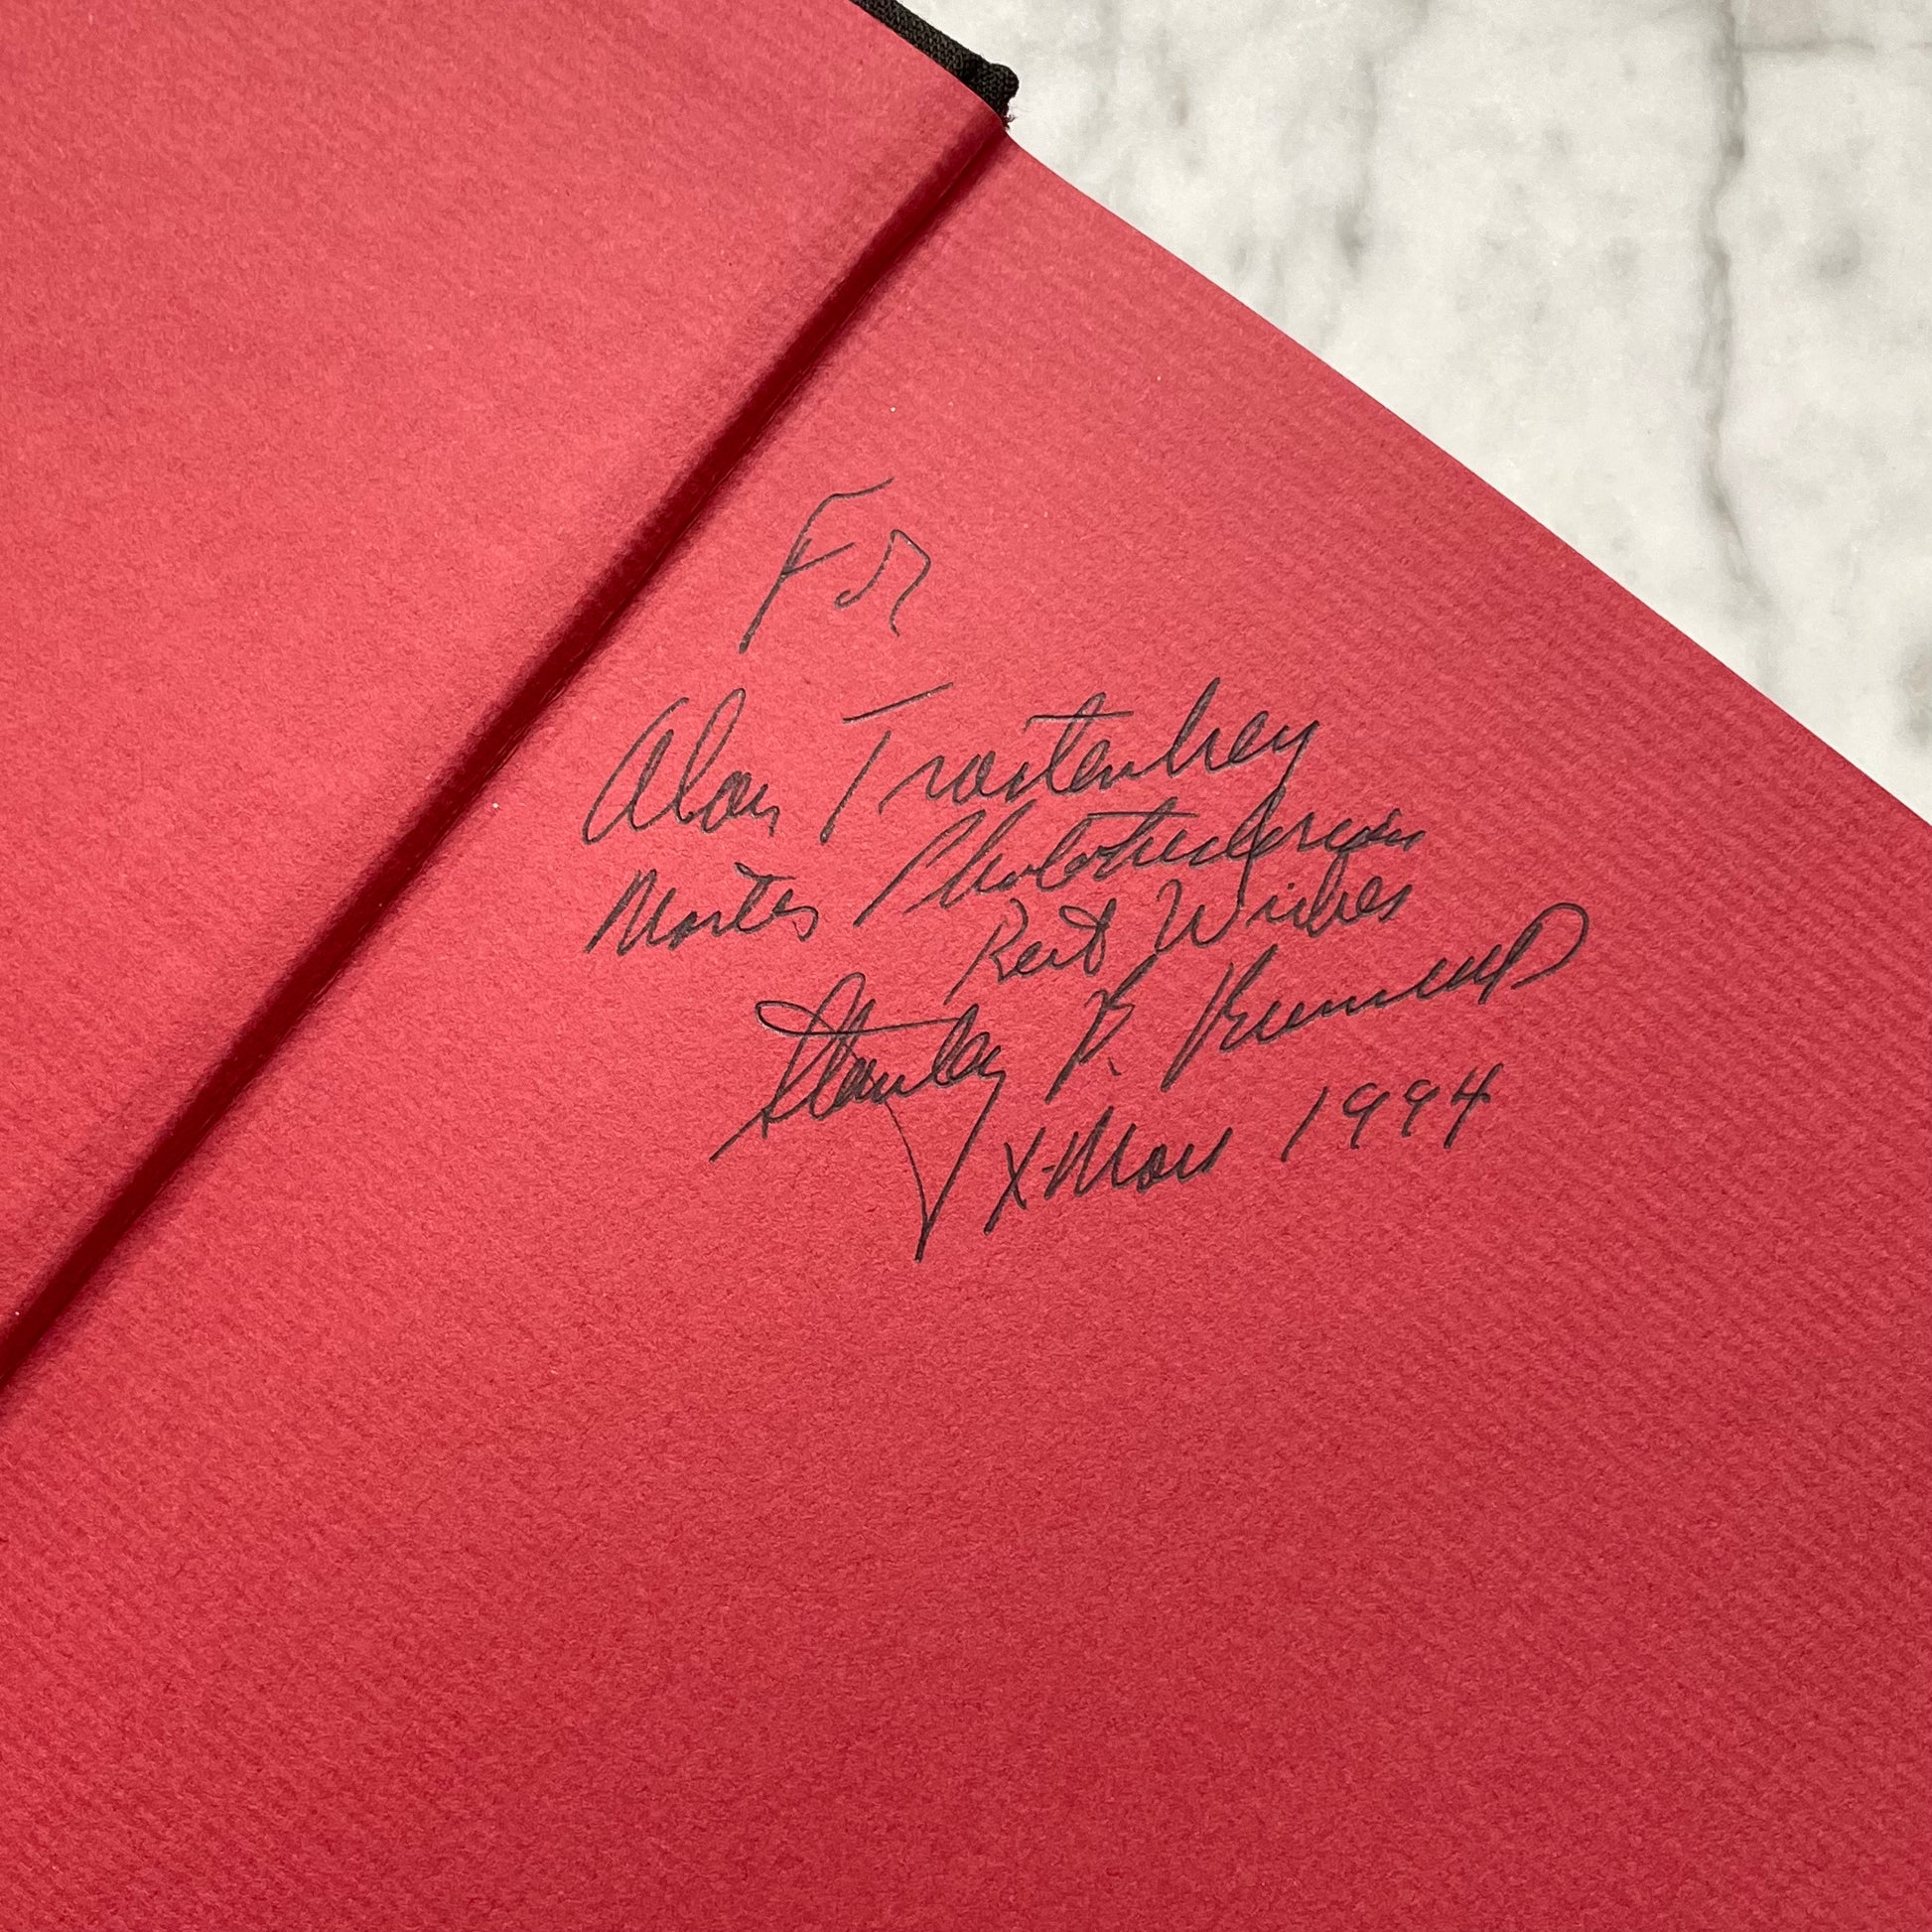 For
Alan Trastenbrey
Master
Best Wishes
Stanley B. Burns MD
X-Mas 1994